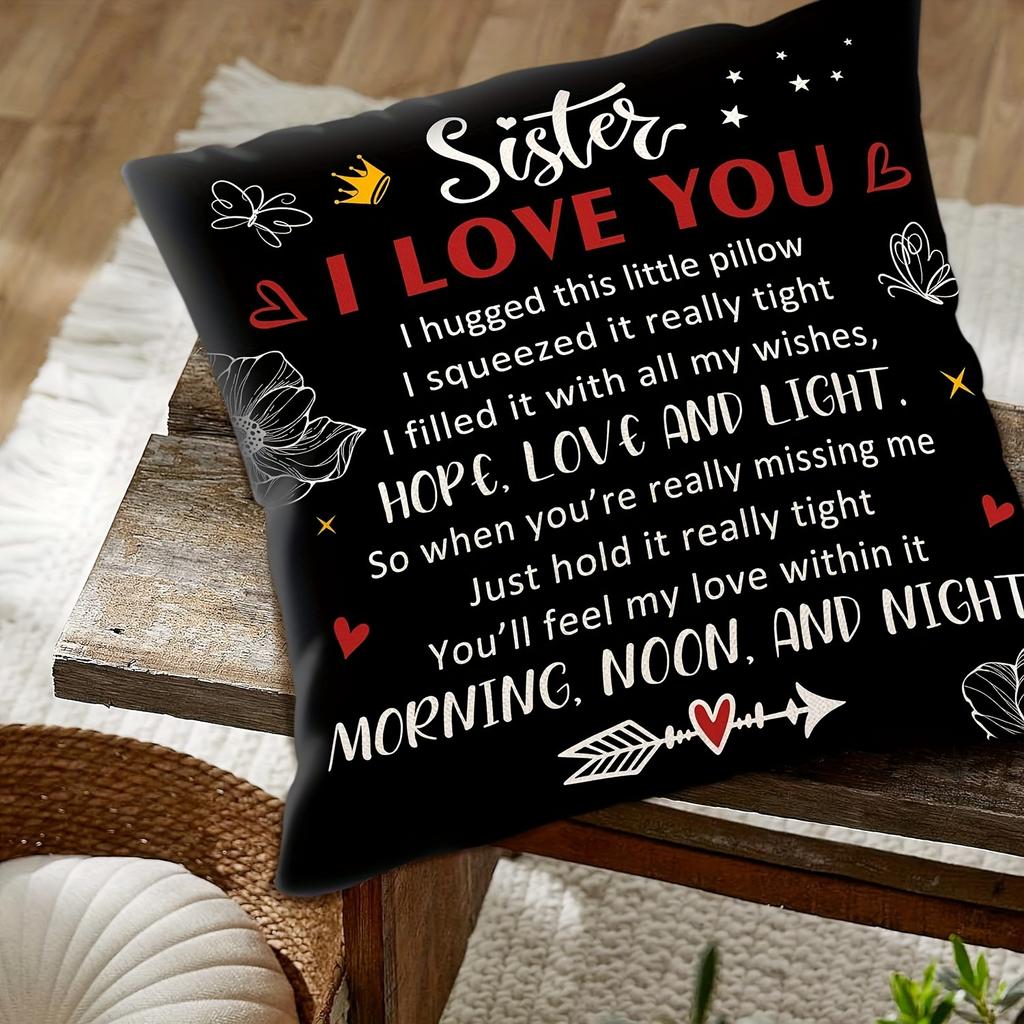 Sister
I LOVE YOU
I hugged this little pillow
I squeezed it really tight
I filled it with all my wishes,
HOPE, LOVE AND LIGHT.
So when you're really missing me
Just hold it really tight
You'll feel my love within it
MORNING, NOON, AND NIGHT